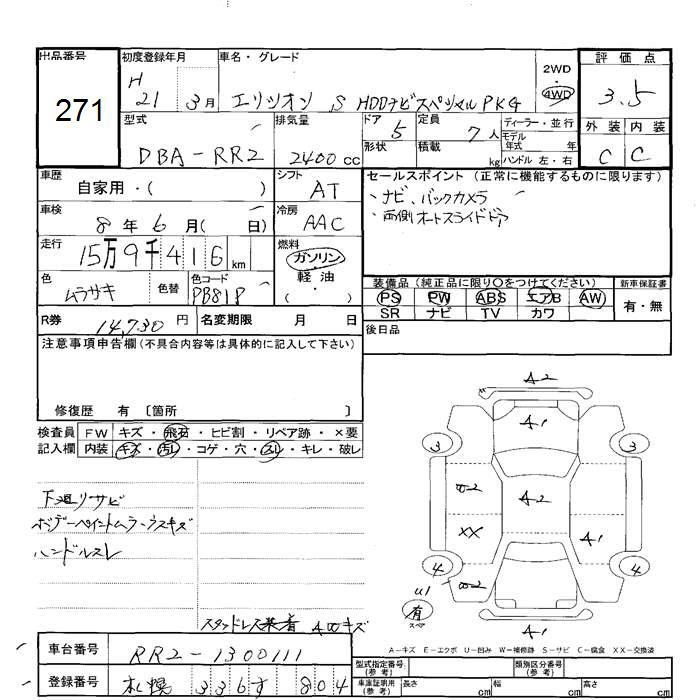 出品番号
271
初度登録年月
H 21 3月
車名・グレード
エリシオン S HDDナビスペシャル PKG
2WD
・
4WD
評価点
3.5
外装 内装
C C
型式
DBA-RR2
排気量
2400 cc
ドア 5
形状
定員 7人
積載 kg
ディーラー・並行
モデル年式 年
ハンドル 左・右
車歴
自家用・( )
シフト
AT
車検
8年6月( 日)
冷房
AAC
走行
15万9千416km
燃料
ガソリン
軽油
( )
色
ムラサキ
色替
色コード
PB81P
セールスポイント (正常に機能するものに限ります)
・ナビ、バックカメラ
・両側オートスライドドア
装備品(純正品に限り○をつけてください)
PS PW ABS エアB AW
SR ナビ TV カワ
新車保証書
有・無
後日品
R券 14,730円
名変期限 月 日
注意事項申告欄(不具合内容等は具体的に記入して下さい)
修復歴 有 〔箇所 〕
検査員記入欄
FW キズ・飛石・ヒビ割・リペア跡・×要
内装 キズ・汚レ・コゲ・穴・スレ・キレ・破レ
下廻リサビ
ボデーペイントムラ・ウスキズ
ハンドルスレ
スタッドレス装着 4本キズ
A2
A1
3 3
A2
XX
A1
4 4
U1
有
スペア
A1
A-キズ E-エクボ U-凹み W-補修跡 S-サビ C-腐食 XX-交換済
車台番号
RR2-1300111
登録番号
札幌 336 す 804
型式指定番号(参考)
類別区分番号(参考)
車庫証明用(参考) 長さ cm 幅 cm 高さ cm